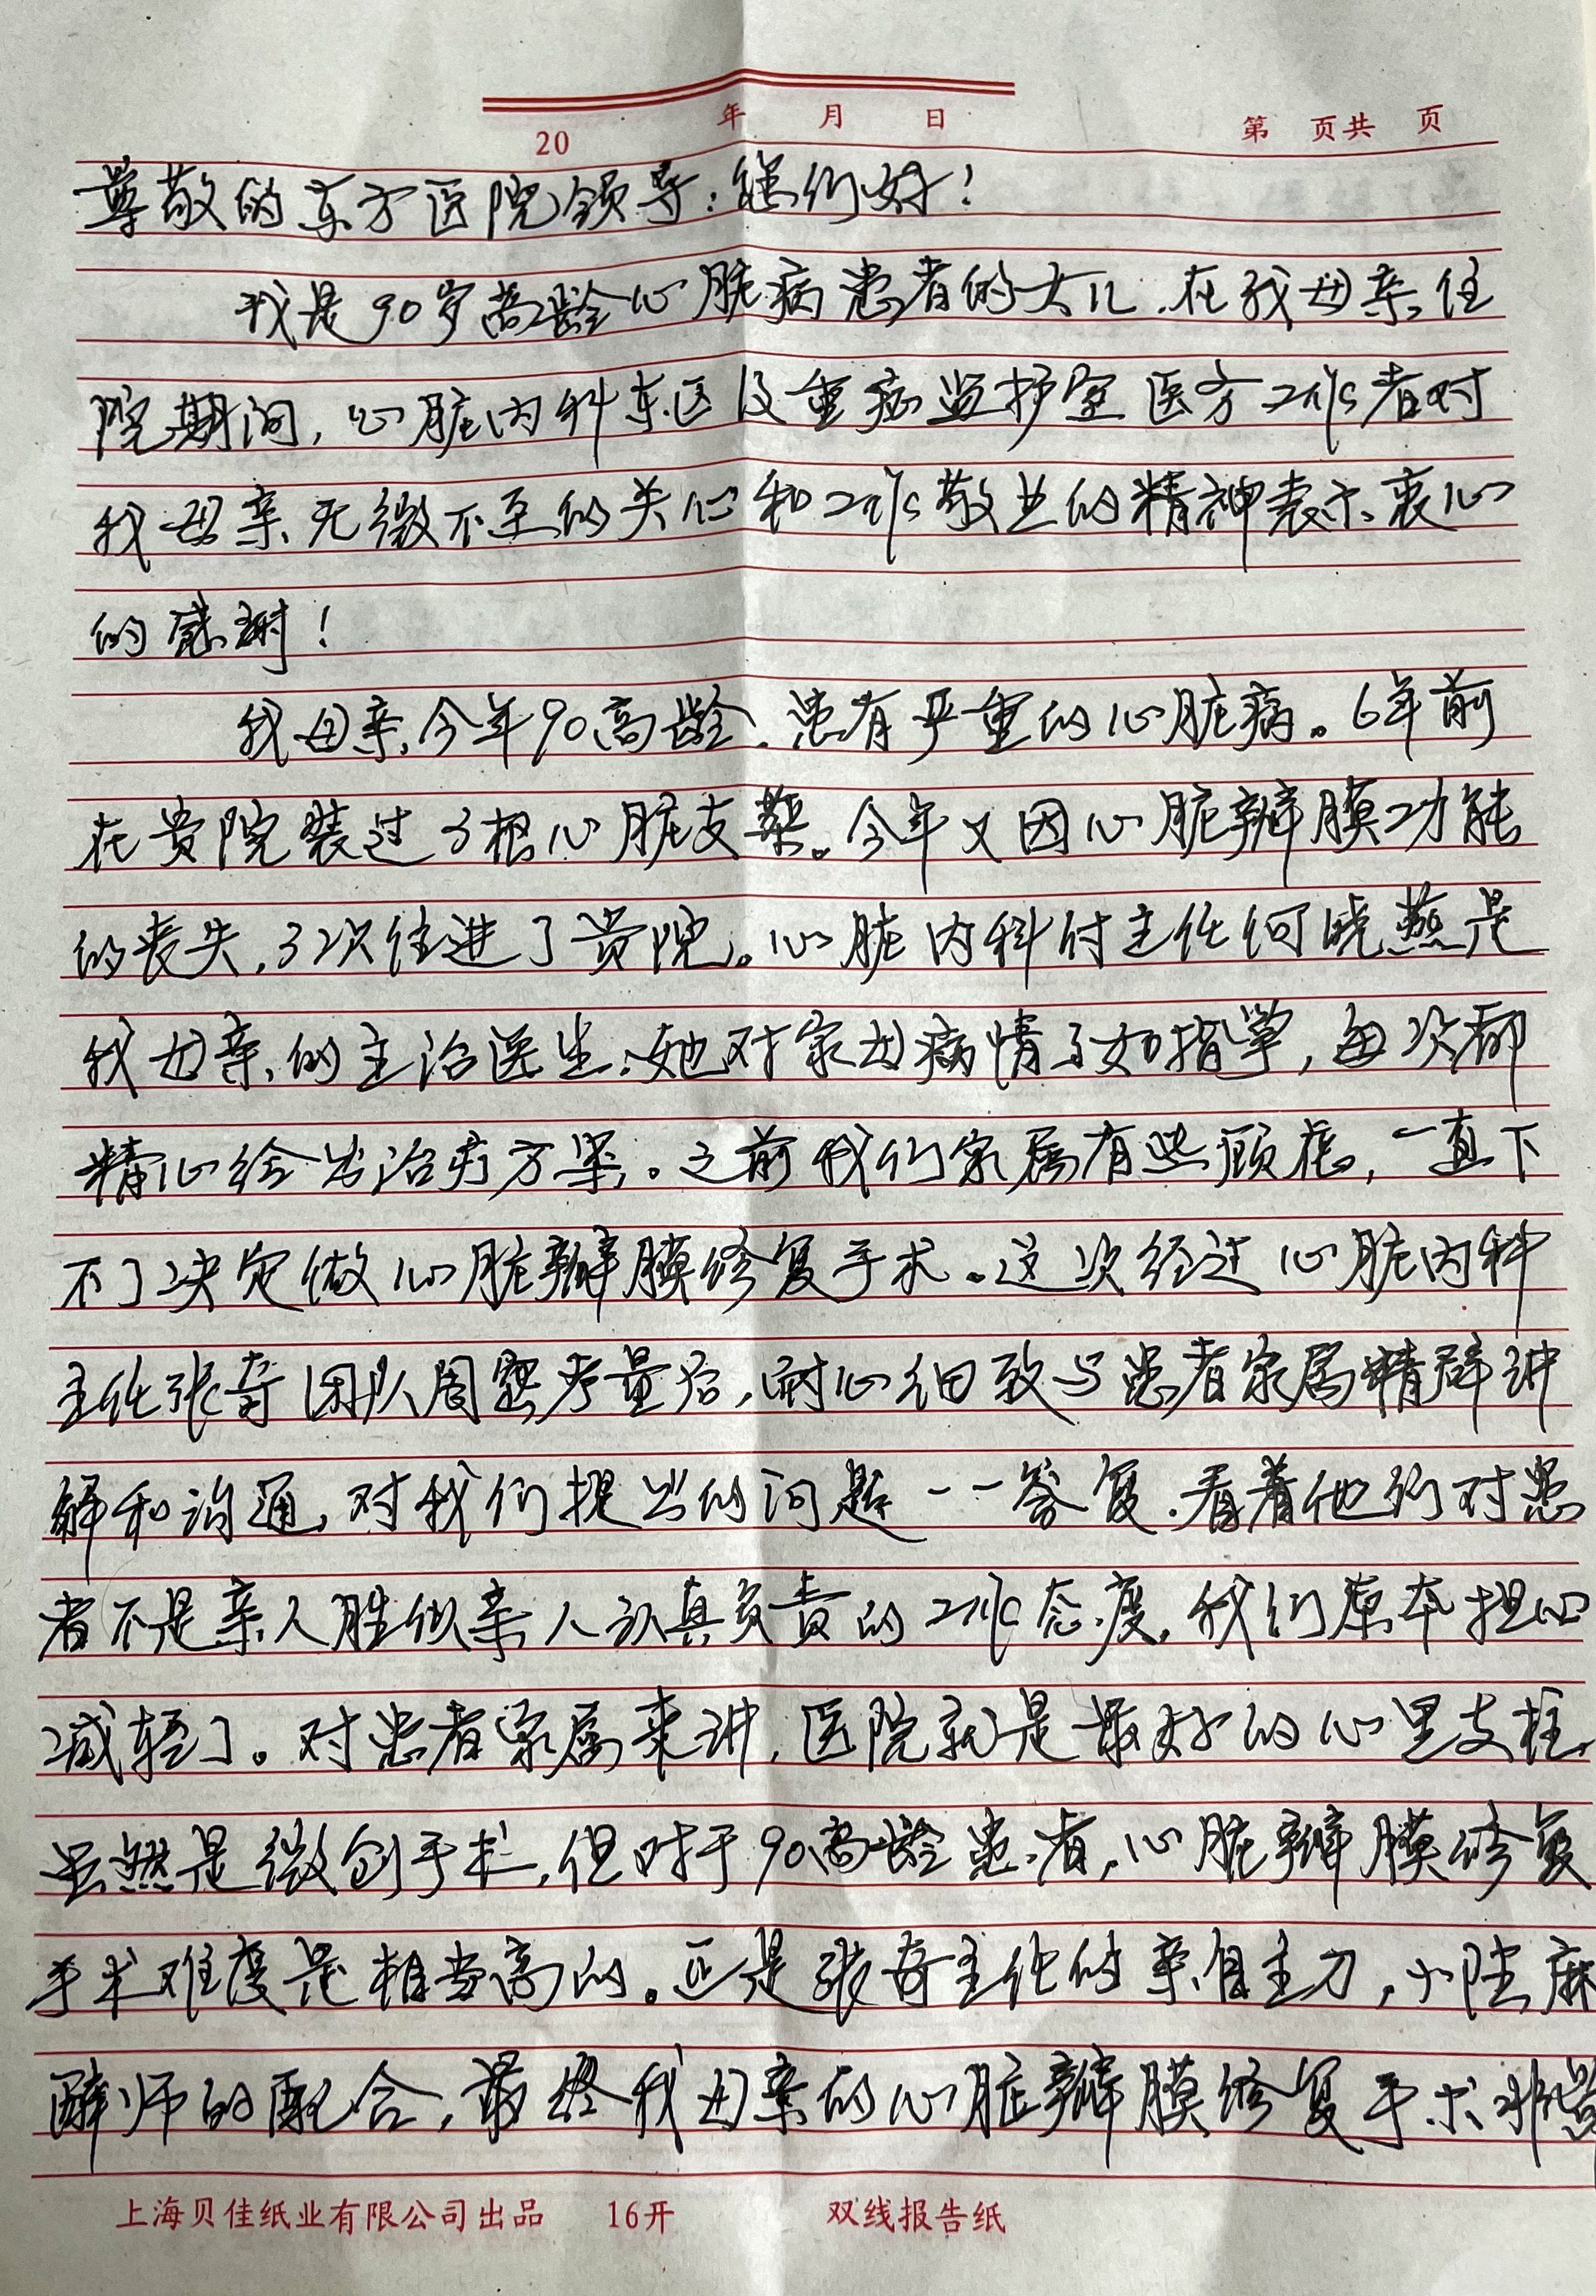 20 年 月 日 第 页共 页
尊敬的东方医院领导：您们好！
我是90岁高龄心脏病患者的女儿．在我母亲住
院期间，心脏内科东区及重症监护室医务工作者对
我母亲无微不至的关心和工作敬业的精神表示衷心
的感谢！
我母亲今年90高龄．患有严重的心脏病。6年前
在贵院装过3根心脏支架。今年又因心脏瓣膜功能
的丧失，3次住进了贵院。心脏内科付主任何晓燕是
我母亲的主治医生．她对家母病情了如指掌，每次都
精心给出治疗方案。之前我们家属有些顾虑，一直下
不了决定做心脏瓣膜修复手术。这次经过心脏内科
主任张奇团队周密考量后，耐心细致与患者家属精辟讲
解和沟通，对我们提出的问题一一答复．看着他们对患
者不是亲人胜似亲人认真负责的工作态度，我们原本担心
减轻了。对患者家属来讲，医院就是最好的心里支柱．
虽然是微创手术，但对于90高龄患者，心脏瓣膜修复
手术难度是相当高的。正是张奇主任的亲自主刀，小陆麻
醉师的配合，最终我母亲的心脏瓣膜修复手术非常
上海贝佳纸业有限公司出品 16开 双线报告纸